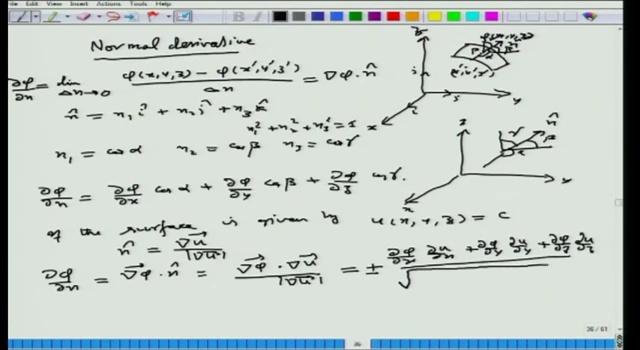 Edit View Insert Actions Tools Help
Normal derivative
∂φ/∂n = lim Δn→0 (φ(x,y,z) − φ(x',y',z'))/Δn = ∇φ·n̂
n̂ = n₁î + n₂ĵ + n₃k̂
n₁² + n₂² + n₃² = 1
n₁ = cos α n₂ = cos β n₃ = cos γ
∂φ/∂n = ∂φ/∂x cos α + ∂φ/∂y cos β + ∂φ/∂z cos γ.
If the surface is given by u(x,y,z) = c
n̂ = ∇u/|∇u|
∂φ/∂n = ∇φ·n̂ = ∇φ·∇u/|∇u| = ± (∂φ/∂x ∂u/∂x + ∂φ/∂y ∂u/∂y + ∂φ/∂z ∂u/∂z)/√
z
y
x
z
n̂
γ
β
α
y
x
36 / 61
36